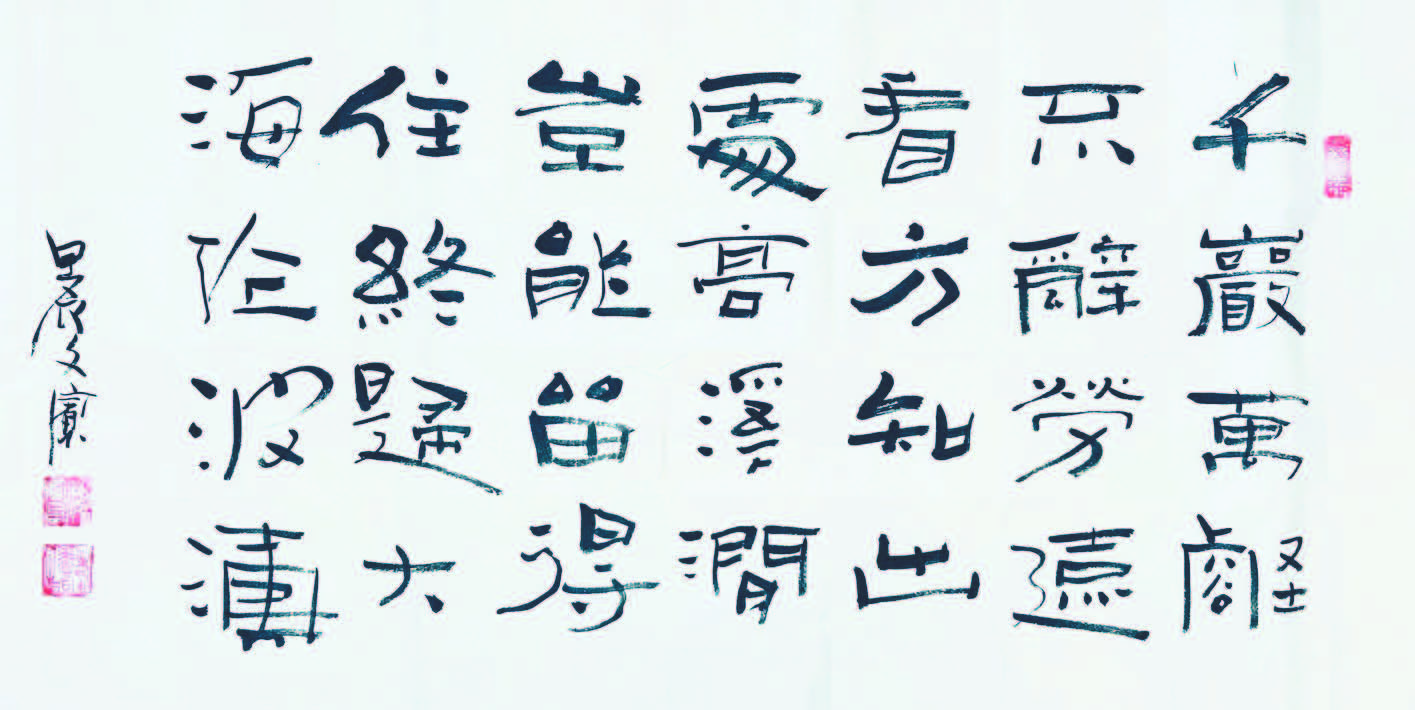 千巖萬壑
不辭勞遠
看方知出
處高溪澗
豈能留得
住終歸大
海作波濤